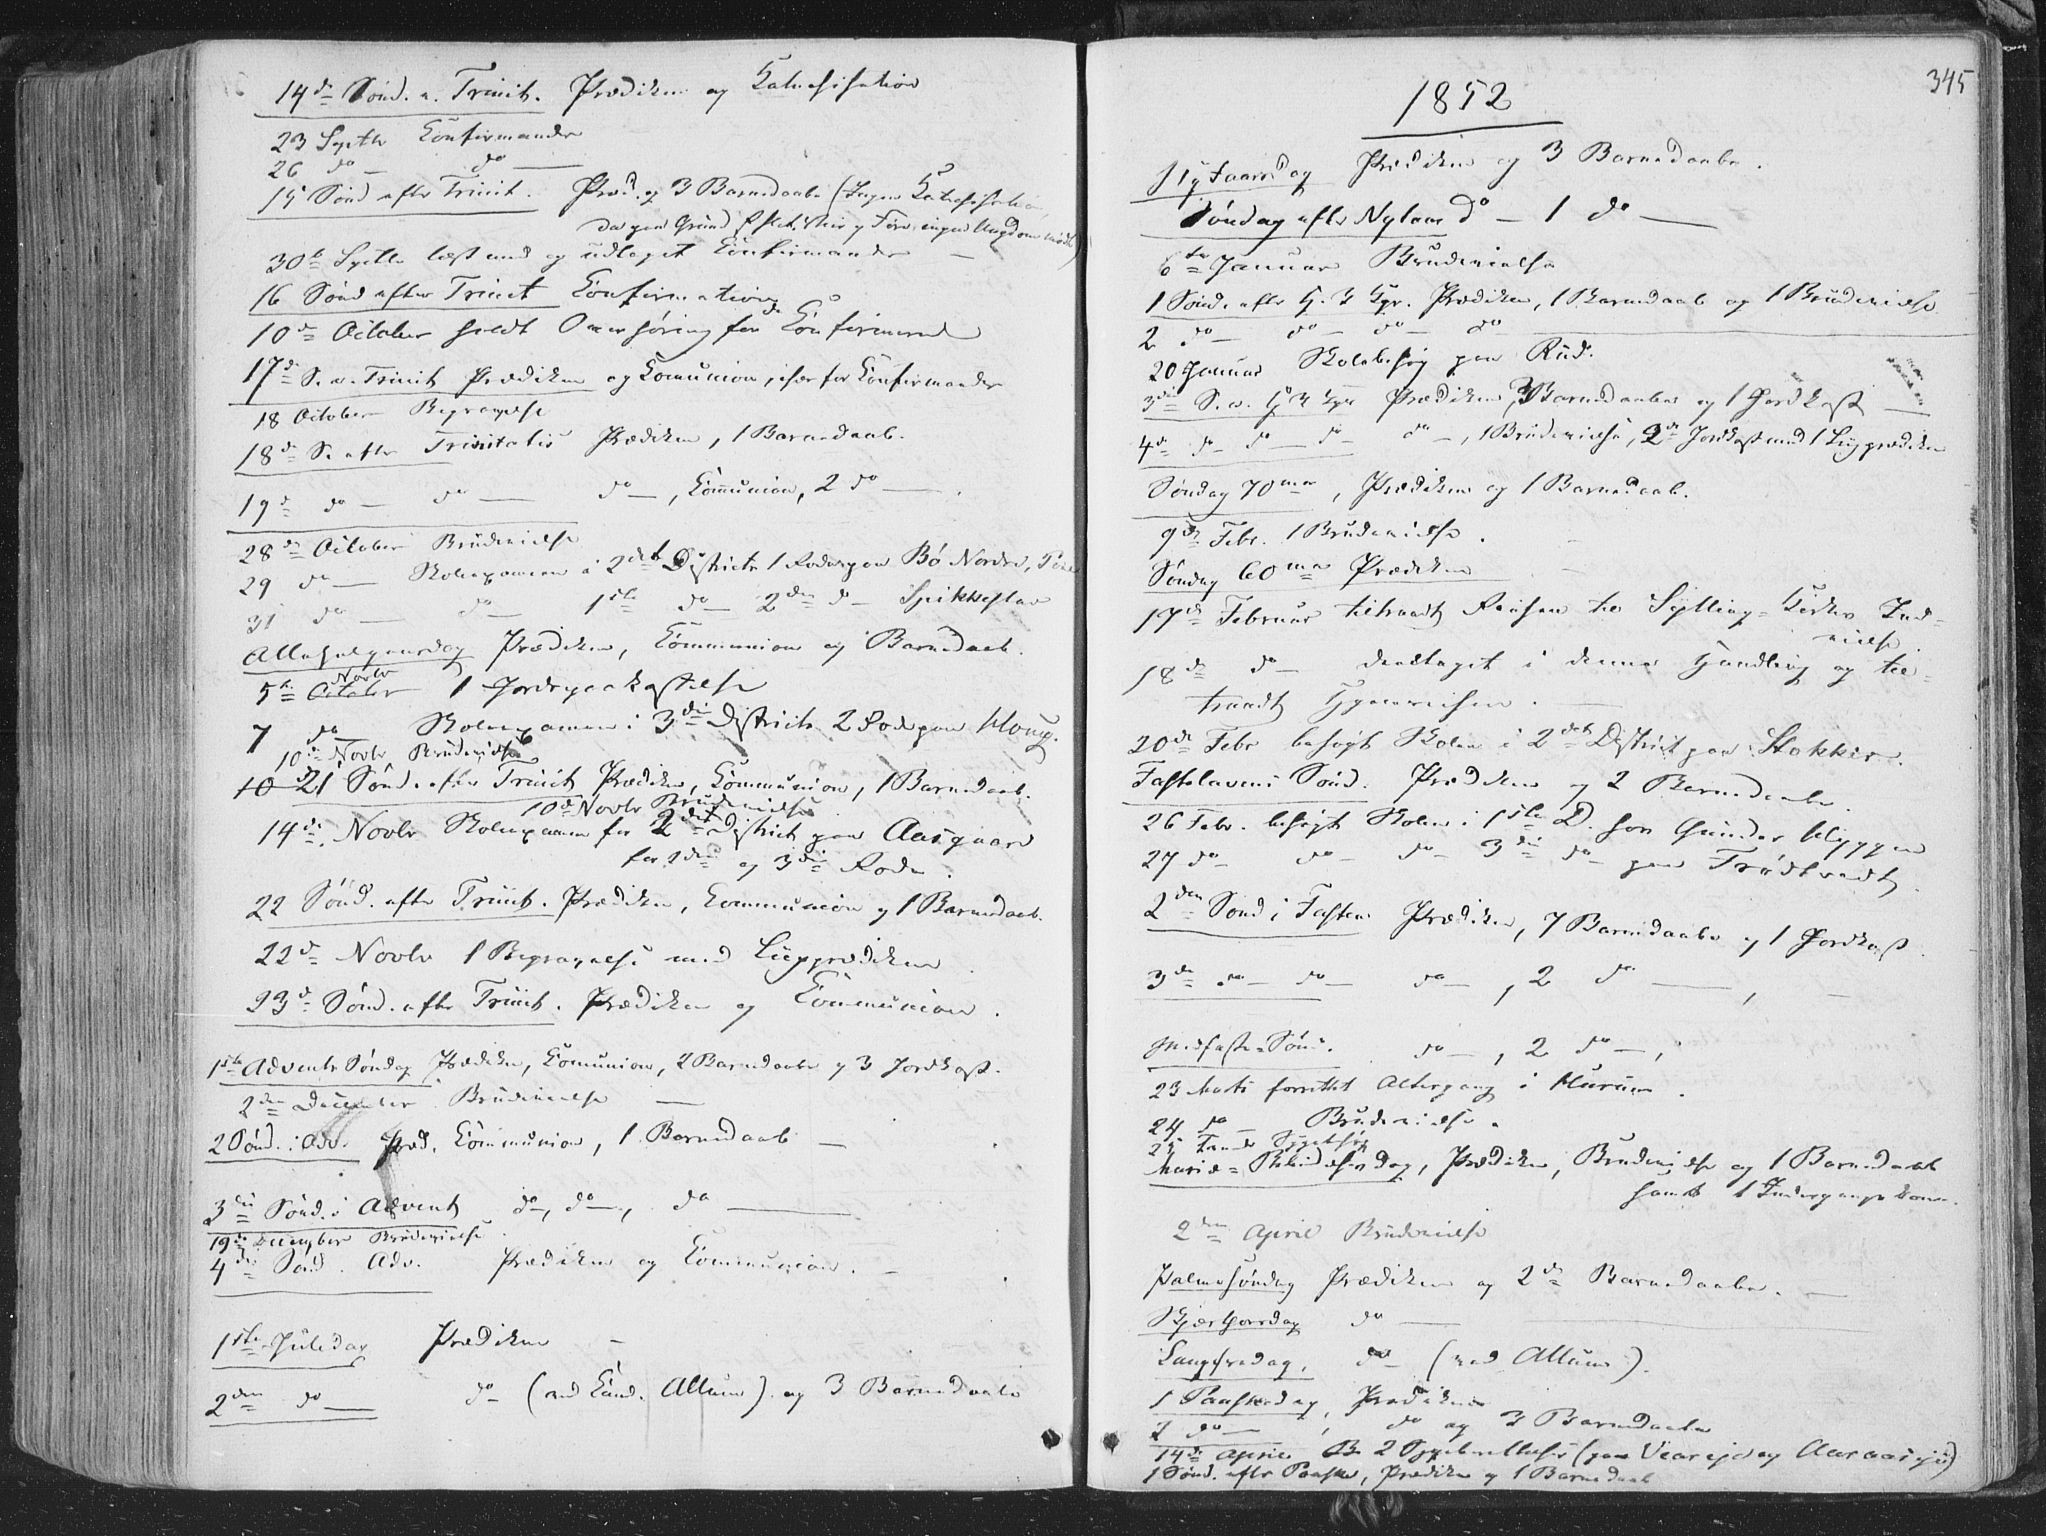 14de Sönd. a. Trinit. Prædiken og Katechisation
23 Septbr Confirmander
26 do — do —
15 Sönd after Trinit. Præd. og 3 Barnedaabe (Ingen Katechisation,
da paa Grund af
30te Septbr læst med og udlagt Confirmander —
16 Sönd after Trinit Confirmation
10de October holdt Overhöring for de Confirmerede
17de S. a. Trinit Prædiken og Comunion, især for Confirmander
18 October Begravelse
18de S. after Trinitatis Prædiken, 1 Barnedaab.
19de do — do — do —, Communion, 2 do —.
28de October Brudevielse
29 do — Skoleexamen i 2det District 1 Rode paa Bö Nordre,
31 do — do — 1ste do — 2den do — Spikkestad
Allehelgensdag Prædiken, Communion og Barnedaab.
5te October Novbr 1 Jordpaakastelse
7 do — Skoleexamen i 3die District 2 Rode paa Houg.
10de Novbr Brudevielse
10 21 Sönd. after Trinit Prædiken, Communion, 1 Barnedaab.
10de Novbr Brudevielse
14de Novbr Skoleexamen for 2det District paa Aasgaard
for 2den og 3die Rode.
22 Sönd. after Trinit. Prædiken, Communion og 1 Barnedaab.
22de Novbr 1 Begravelse med Liigprædiken
23de Sönd. after Trinit. Prædiken og Communion.
1ste Advents Söndag Prædiken, Comunion, 2 Barnedaabe og 3 Jordkast.
2den December Brudevielse —
2 Sönd. i Adv. Præd, Communion, 1 Barnedaab —
3die Sönd. i Advent do, do —, do —
19de December Brudevielse
4de Sönd. Adv. Prædiken og Communion. —
1ste Juledag Prædiken —
2den do — do — (ved Cand. Allum) og 3 Barnedaabe
345
1852
Nytaarsdag Prædiken og 3 Barnedaabe.
Söndag after Nytaar do — 1 do —
6te Januar Brudevielse
1 Sönd. after H. 3 Kgr. Prædiken, 1 Barnedaab og 1 Brudevielse
2 do — do — do — do
20 Januar Skolebesög paa Rud.
3die S. a. H 3 Kgr Prædiken, 3 Barnedaaber og 1 Jordkast —
4de do do — do — do —, 1 Brudevielse, 2de Jordkast med 1 Liigprædiken
Söndag 70ma, Prædiken og 1 Barnedaab.
9de Febr. 1 Brudevielse.
Söndag 60ma Prædiken
17de Februar tiltraadt Reisen til Sylling-Kirkes Ind-
vielse
18de do — deeltaget i denne Handling og til-
traadt Hjemreisen. —
20de Febr besögt Skolen i 2det District paa Stokker.
Fastelavens Sönd. Prædiken og 2 Barnedaabe.
26 Febr. besögt Skolen i 1ste D. hos Gunder Hyggen
27 do — do — do — 3die do — paa Frödtvedt.
2den Sönd i Fasten Prædiken, 7 Barnedaabe og 1 Jordkast.
3die do — do — do —, 2 do —, —
Midfaste-Sönd. do —, 2 do —,
23 Marts forrettet Altergang i Hurum.
24 do — Brudevielse.
25 Sygebesög
Mariæ-Bebudelsesdag, Prædiken, Brudevielse og 1 Barnedaab
samt 1 Indgangskone.
2den April Brudevielse
Palmesöndag Prædiken og 2de Barnedaabe. —
Skjærthorsdag do —
Langfredag, do — (ved Allum).
1 Paaskedag, Prædiken
2 do —, do og 3 Barnedaabe
14de April 2 Sygeberettelser (paa Vearejd og Aaraasejie)
1 Sönd. after Paaske, Prædiken og 1 Barnedaab